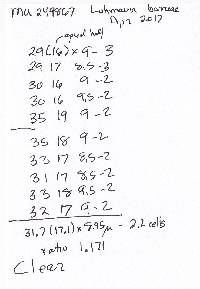 MU 249867 Lohmann
Apr 2017
apical half
29(16) x 9 - 3
29 17 8.5-3
30 16 9 -2
30 16 9.5 -2
35 19 9 -2
35 18 9 -2
33 17 8.5-2
31 17 8.5-2
33 18 9.5-2
32 17 9 - 2
31.7 (17.1) x 8.95µ - 2.2 cells
ratio 1.171
Clear